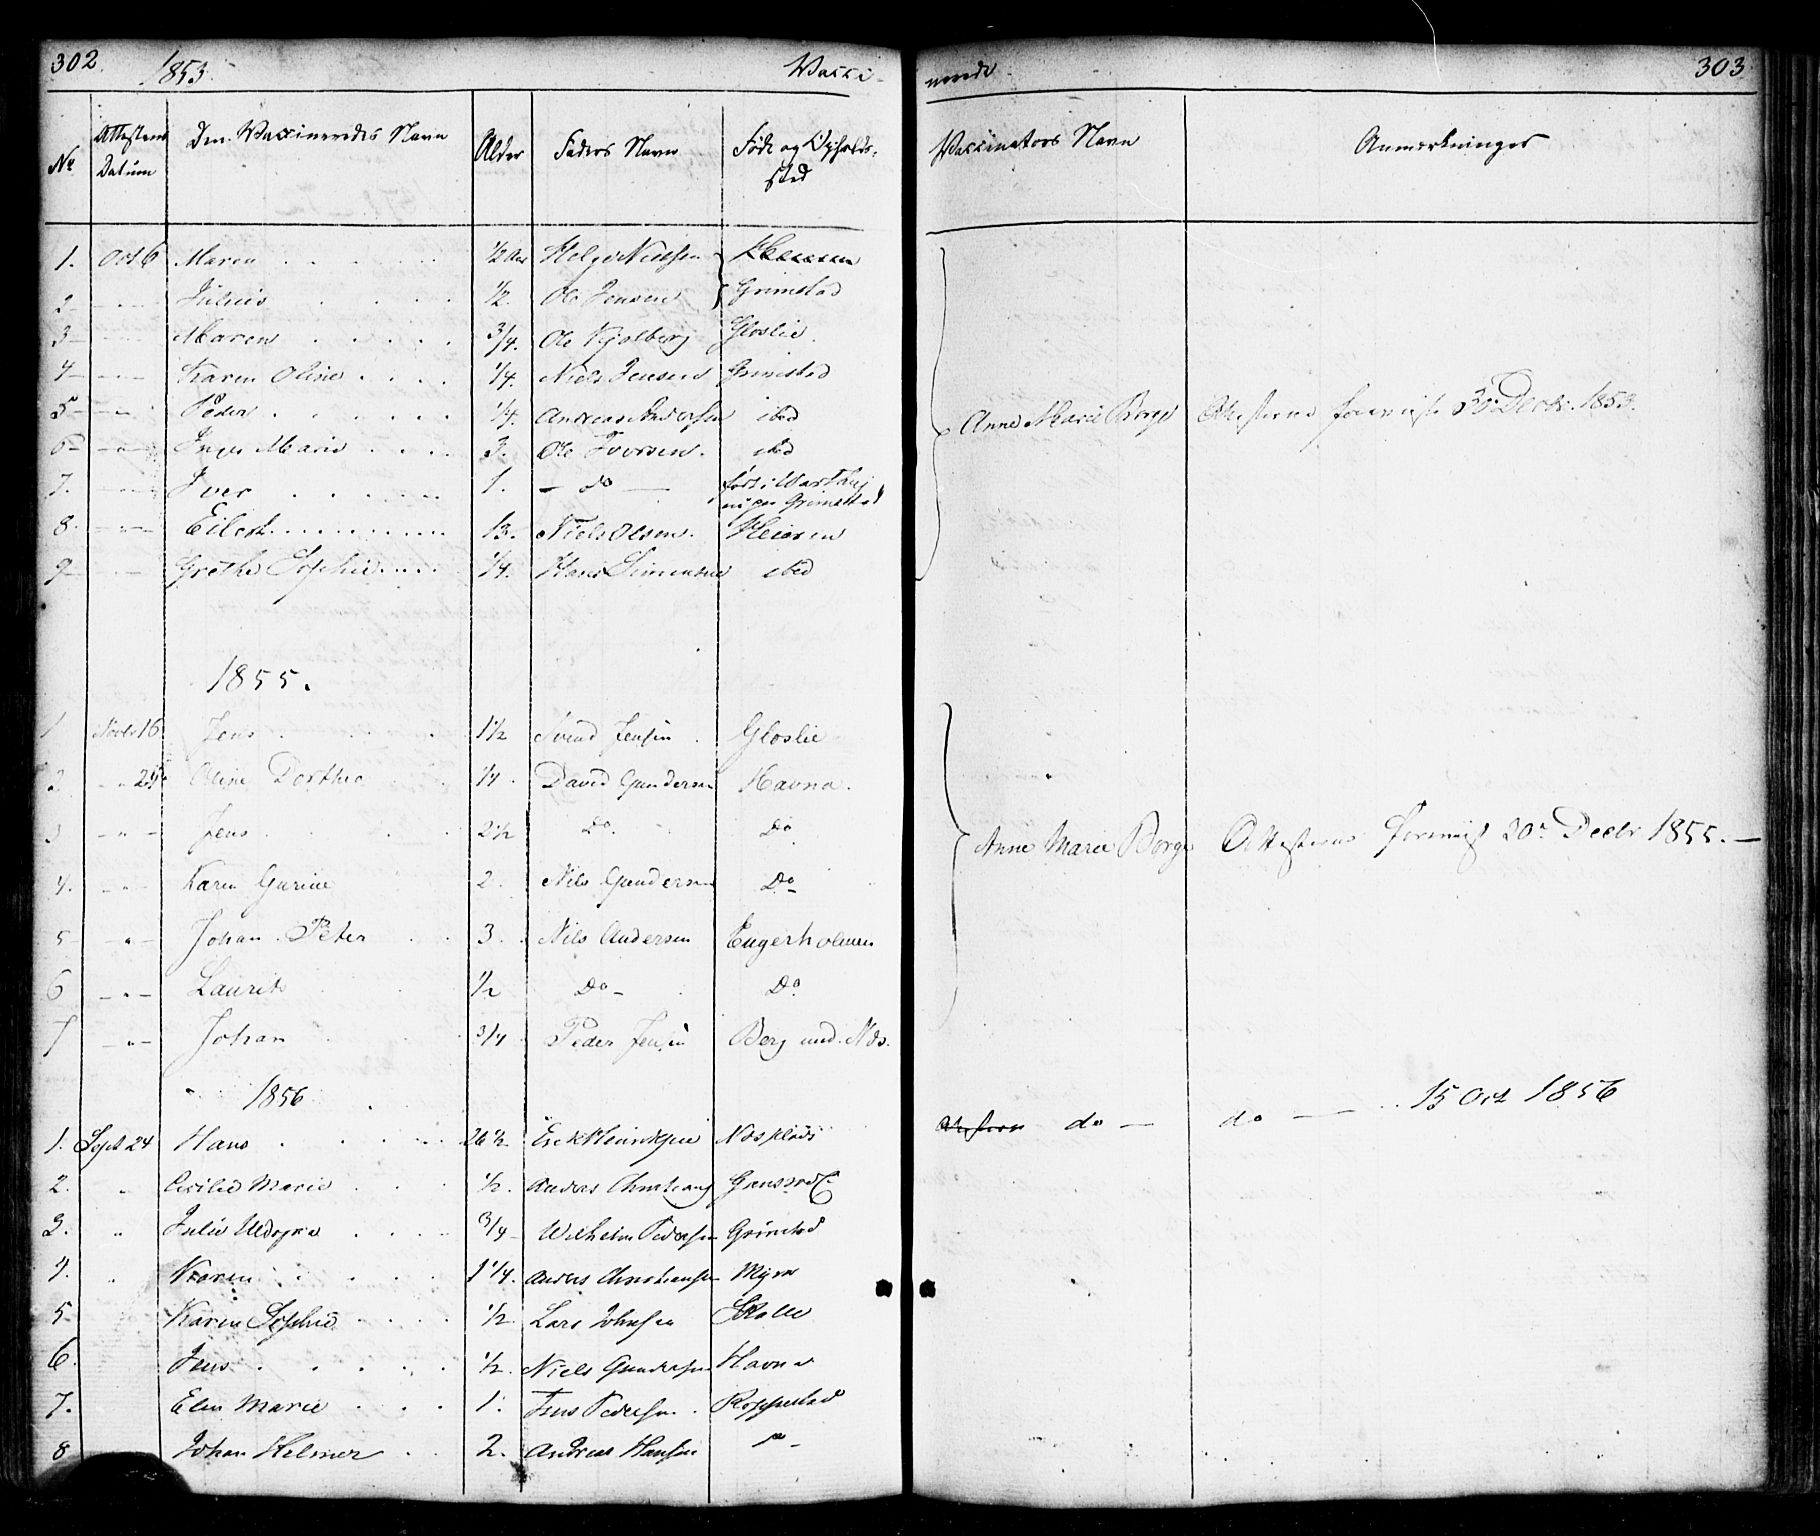 302 1853. Vacci-
No Attestens Datum Den Vaccineredes Navn Alder Faders Navn Føde og Opholds-
sted
1. Oct 6 Maren ½ Aar Helge Nielsen
2 Julius ½. Ole Jensen Grimstad
3 Maren ¾. Ole Kjølberg Gloslie
4 Karen Oline ¼. Niels Jensen Grimstad
5 Peder ¼. Andreas Andersen ibid
6 Inger Marie 3. Ole Iversen. ibid
7. Iver 1. do født i
nu paa Grimstad
8. Eilert 13. Niels Olsen. Heieren
9 Grethe Sophie ¼. Hans Simensen ibid
1855.
1 Novbr 16 Jens 1½ Svend Jensen Gloslie
2 " Oline Dorthea ¼. David Gundersen Havna.
3 " Jens 2½ Do. Do
4. " Karen Gurine 2. Nils Gundersen Do
5 " Johan Peter 3. Nils Andersen Engerholmen
6 " Laurits ½ Do Do
7 " Johan ¾ Peder Jensen Berg und. Næs.
1856
1. Sept 24 Hans 26½ Erik Henriksen
2. " Cecilie Marie ½. Anders Christians
3. " Julie ¾ Wilhelm Pedersen Grimstad
4. " Karen 1¼. Anders Christiansen Myra
5 Karen Sophie ½. Lars Johnsen
6. Jens ½ Niels Gundersen Havna
7. Elen Marie 1. Jens Pedersen. Roppestad
8 Johan Helmer 2. Andreas Hansen
nerede 303
Vaccinators Navn Anmerkninger
Anne Marie Borge Attesterne forevist 30 Decbr. 1853.
Anne Marie Borge Attesterne forevist 20de Decbr 1855.—
do — do — 15 Oct 1856